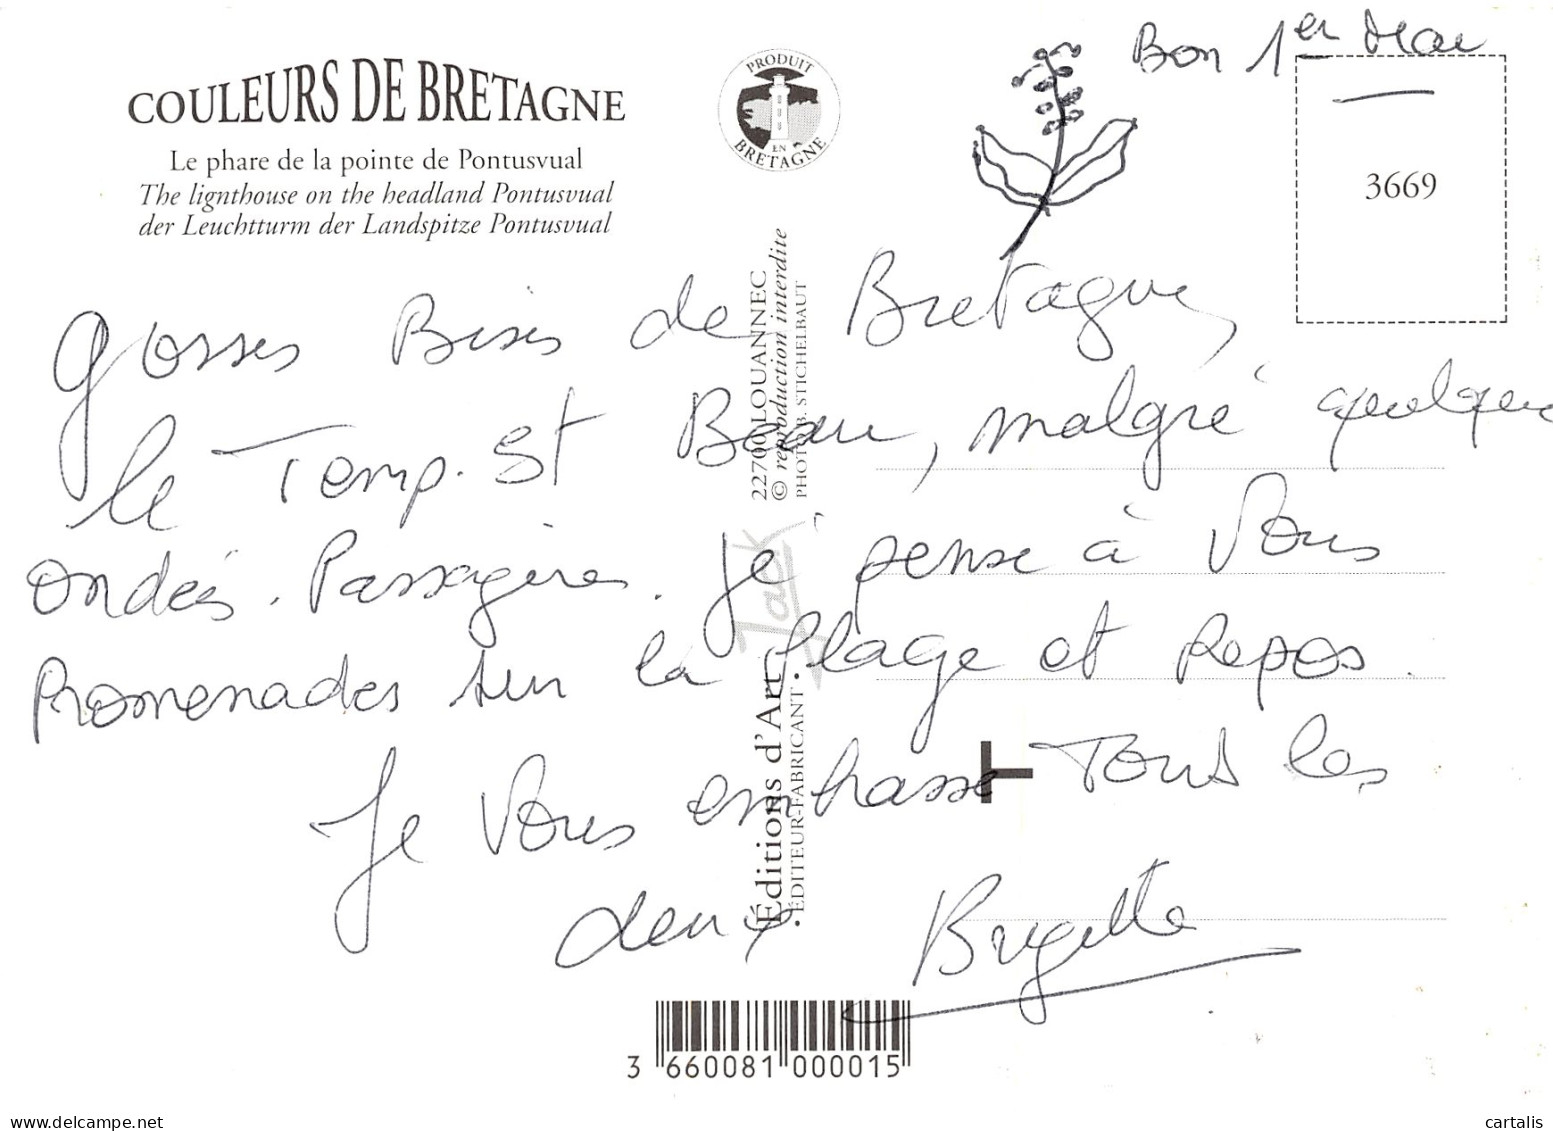 Bon 1er Mai
COULEURS DE BRETAGNE
Le phare de la pointe de Pontusvual
The lignthouse on the headland Pontusvual
der Leuchtturm der Landspitze Pontusvual
PRODUIT
EN
BRETAGNE
3669
grosses Bises de Bretagne,
le Temps. St Beau, malgré quelques
ondées. Passagères. Je pense à Vous
Promenades sur la Plage et Repos.
Je Vous embrasse Tous les
deux Brigitte
Éditions d'Art Jack 22700 LOUANNEC
• ÉDITEUR-FABRICANT • © reproduction interdite
PHOTO B. STICHELBAUT
3 660081 000015
cartalis
delcampe.net